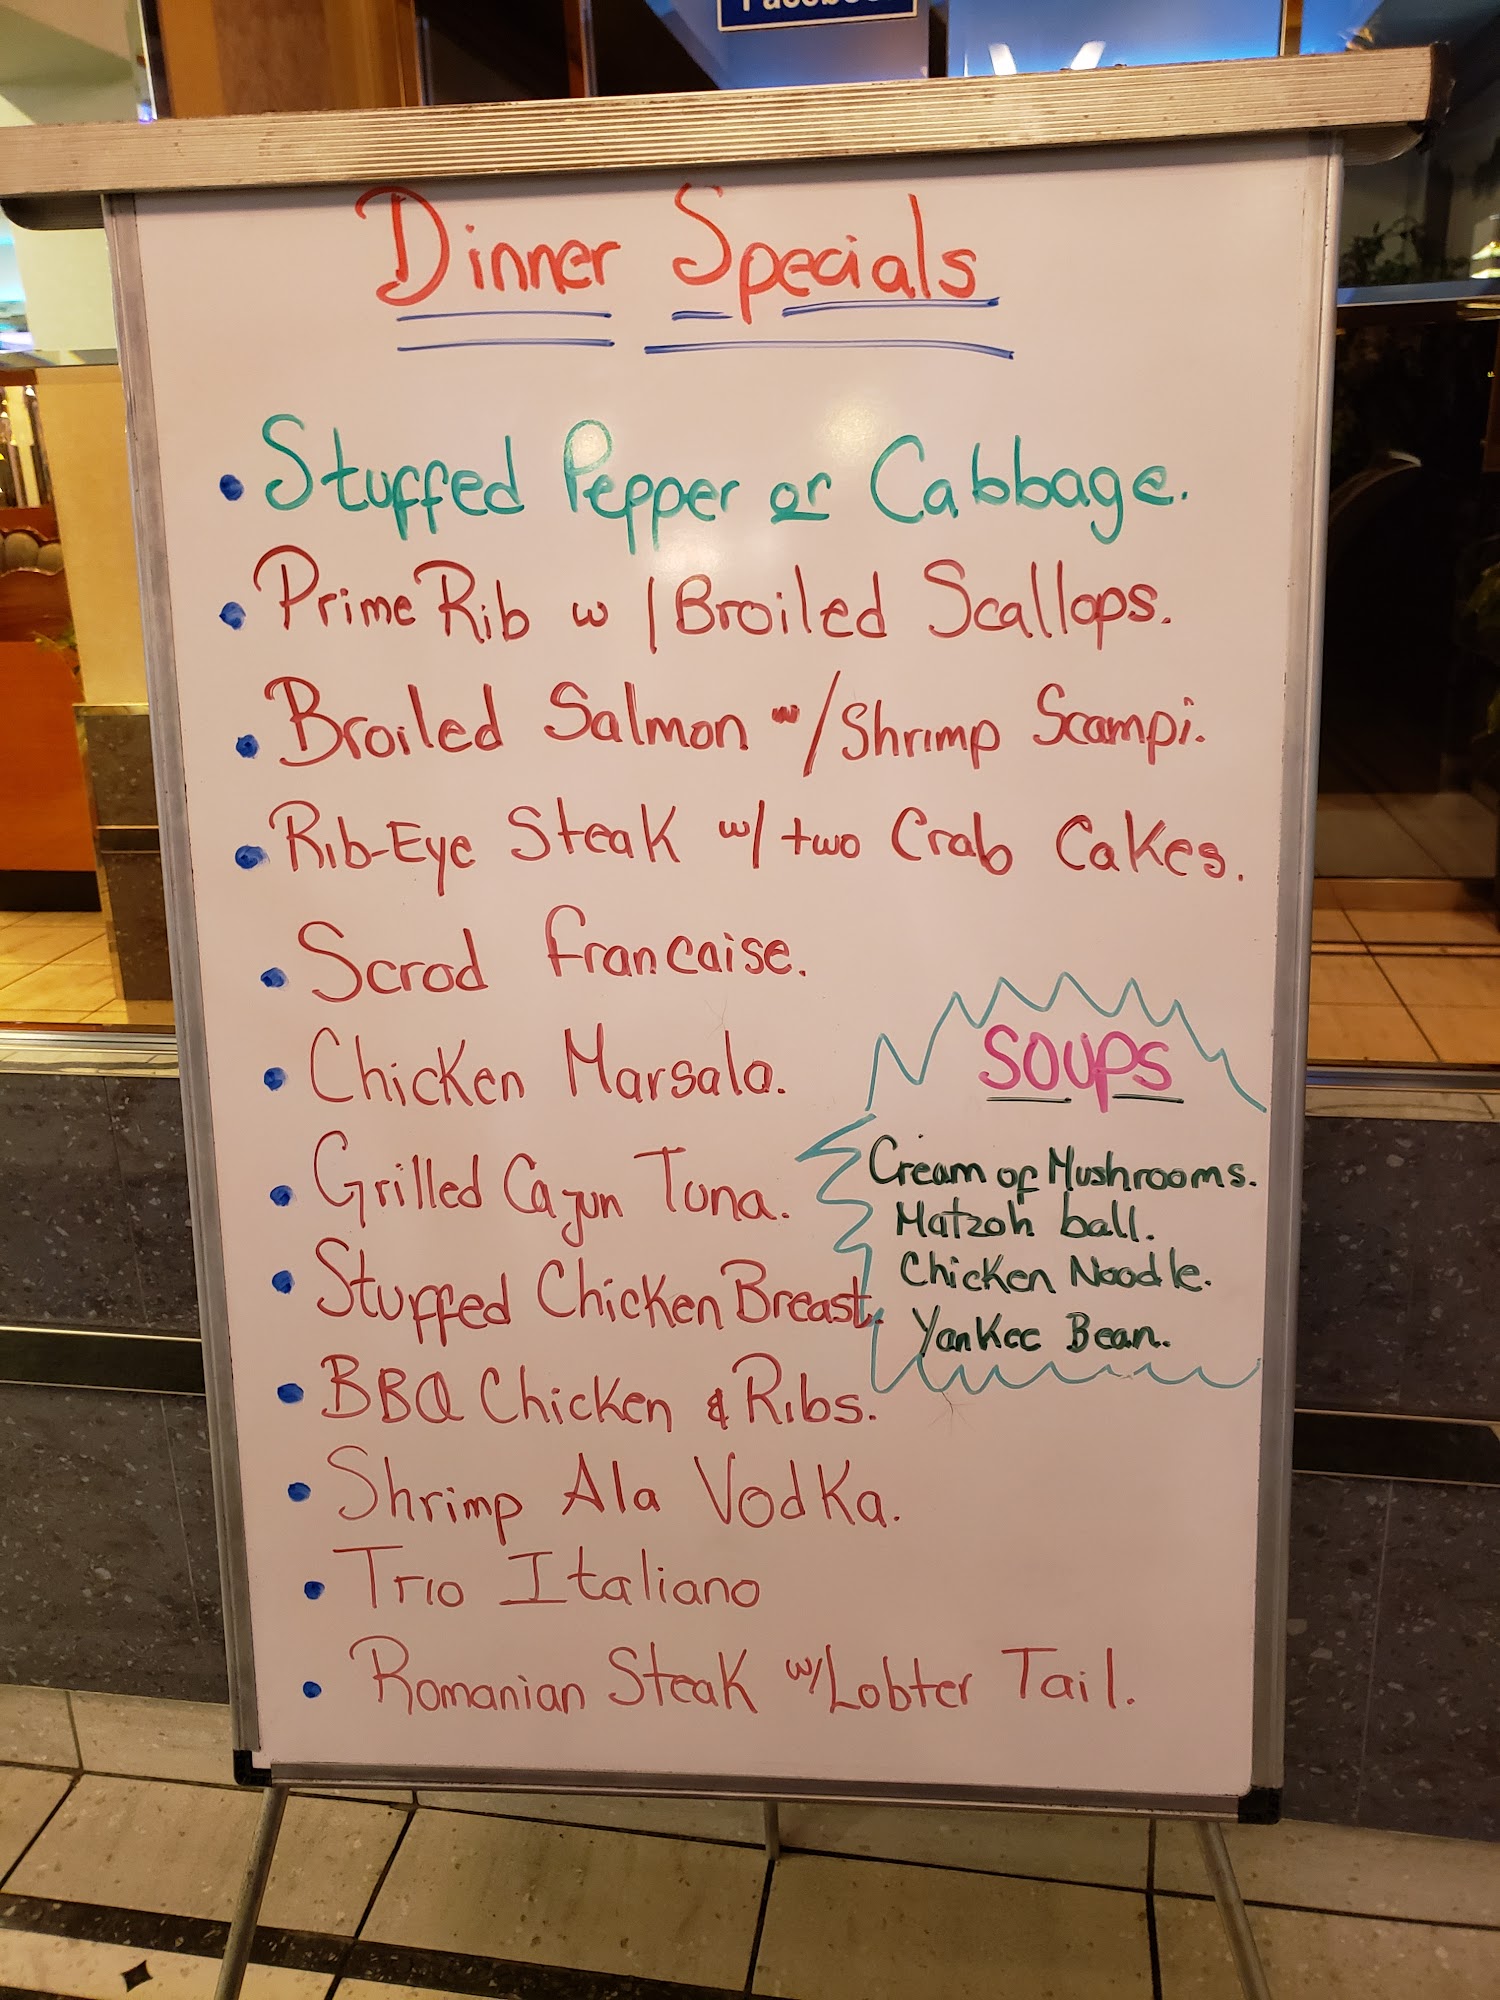 Facebook
Dinner Specials
• Stuffed Pepper or Cabbage.
• Prime Rib w/Broiled Scallops.
• Broiled Salmon w/Shrimp Scampi.
• Rib-Eye Steak w/ two Crab Cakes.
• Scrod francaise.
• Chicken Marsala.
• Grilled Cajun Tuna.
• Stuffed Chicken Breast.
• BBQ Chicken & Ribs.
• Shrimp Ala Vodka.
• Trio Italiano
• Romanian Steak w/Lobter Tail.
SOUPS
Cream of Mushrooms.
Matzoh ball.
Chicken Noodle.
Yankee Bean.